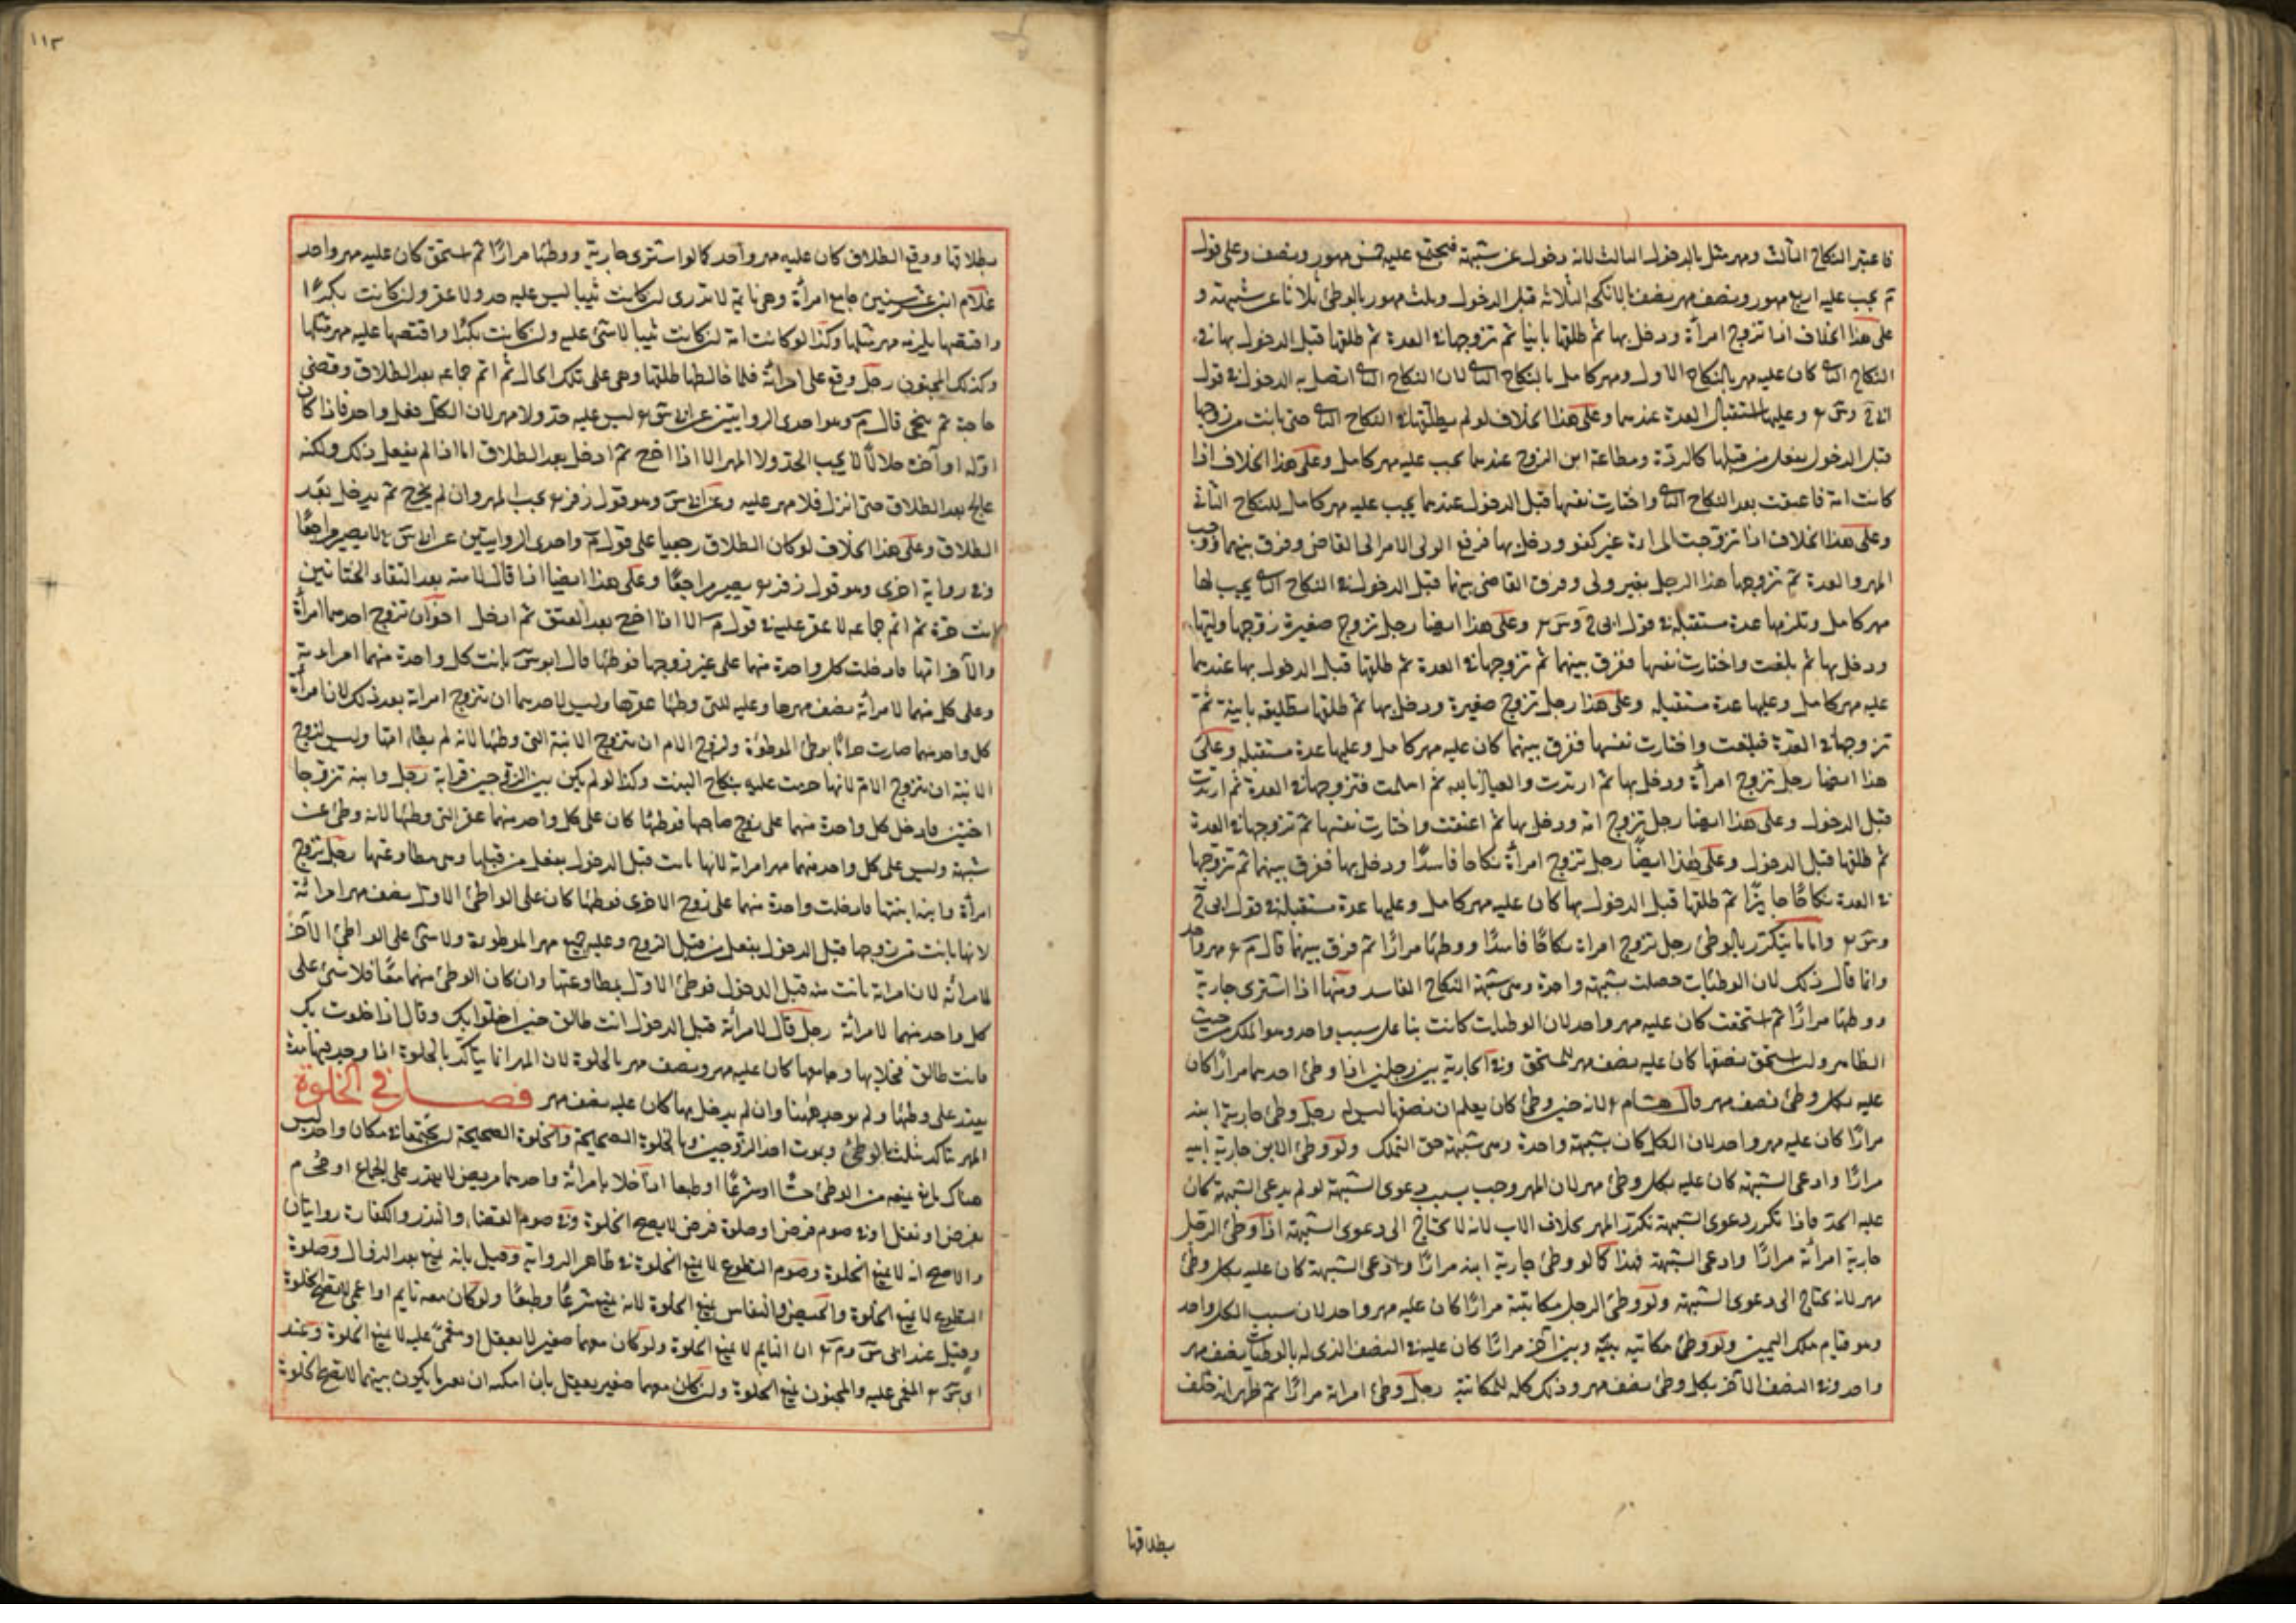 فاعتبر النكاح الثالث ومهر مثل بالدخول الثالث لانه دخول عن شبهة فيجتمع عليه خمس مهور ونصف وعلى قول
م يجب عليه اربع مهور ونصف مهر نصف بالانكحة الثلاثة قبل الدخول وثلث مهور بالوطئ ثلاثا عن شبهة و
على هذا الخلاف اذا تزوج امرأة ودخل بها ثم طلقها باينا ثم تزوجها في العدة ثم طلقها قبل الدخول بها في
النكاح الثاني كان عليه مهر بالنكاح الاول ومهر كامل بالنكاح الثاني لان النكاح الثاني اتصل به الدخول في قول
وعليها استقبال العدة عندهما وعلى هذا الخلاف لو لم يطلقها في النكاح الثاني حتى بانت من زوجها
قبل الدخول بفعل من قبلها كالردة ومطاعة ابن الزوج عندهما يجب عليه مهر كامل وعلى هذا الخلاف اذا
كانت امة فاعتقت بعد النكاح الثاني واختارت نفسها قبل الدخول عندهما يجب عليه مهر كامل للنكاح الثاني
وعلى هذا الخلاف اذا تزوجت المراة غير كفو ودخل بها فرفع الولى الامر الى القاضى وفرق بينهما ووجب
المهر والعدة ثم تزوجها هذا الرجل بغير ولى وفرق القاضى بينهما قبل الدخول في النكاح الثاني يجب لها
مهر كامل وتلزمها عدة مستقبلة في قول ابى ح وس وعلى هذا ايضا رجل تزوج صغيرة زوجها وليها
ودخل بها ثم بلغت واختارت نفسها ففرق بينهما ثم تزوجها في العدة ثم طلقها قبل الدخول بها عندهما
عليه مهر كامل وعليها عدة مستقبلة وعلى هذا رجل تزوج صغيرة ودخل بها ثم طلقها تطليقة باينة ثم
تزوجها في العدة فبلغت واختارت نفسها ففرق بينهما كان عليه مهر كامل وعليها عدة مستقبلة وعلى
هذا ايضا رجل تزوج امرأة ودخل بها ثم ارتدت والعياذ بالله ثم اسلمت فتزوجها في العدة ثم ارتدت
قبل الدخول وعلى هذا ايضا رجل تزوج امة ودخل بها ثم اعتقت واختارت نفسها ثم تزوجها في العدة
ثم طلقها قبل الدخول وعلى هذا ايضا رجل تزوج امرأة نكاحا فاسدا ودخل بها ففرق بينهما ثم تزوجها
في العدة نكاحا جايزا ثم طلقها قبل الدخول بها كان عليه مهر كامل وعليها عدة مستقبلة في قول ابى ح
واما ما يتكرر بالوطئ رجل تزوج امراة نكاحا فاسدا ووطئها مرارا ثم فرق بينهما قال م مهر واحد
وانما قال ذلك لان الوطئات حصلت بشبهة واحدة وهى شبهة النكاح الفاسد ومنها اذا اشترى جارية
ووطئها مرارا ثم استحقت كان عليه مهر واحد لان الوطئات كانت بنا على سبب واحد وهو الملك من حيث
الظاهر ولو استحق نصفها كان عليه نصف مهر للمستحق وفي الجارية بين رجلين اذا وطئ احدهما مرارا كان
عليه بكل وطئ نصف مهر قال هشام لانه حين وطئ كان يعلم ان نصفها ليس له رجل وطئ جارية ابنه
مرارا كان عليه مهر واحد لان الكل كان بشبهة واحدة وهى شبهة حق التملك ولو وطئ الابن جارية ابيه
مرارا وادعى الشبهة كان عليه بكل وطئ مهر لان المهر وجب بسبب دعوى الشبهة لو لم يدعى الشبهة كان
عليه الحد فاذا تكرر دعوى الشبهة تكرر المهر بخلاف الاب لانه لا يحتاج الى دعوى الشبهة اذا وطئ الرجل
جارية امرأته مرارا وادعى الشبهة فهذا كما لو وطئ جارية ابيه مرارا وادعى الشبهة كان عليه بكل وطئ
مهر لانه يحتاج الى دعوى الشبهة ولو وطئ الرجل مكاتبته مرارا كان عليه مهر واحد لان سبب الكل واحد
وهو قيام ملك اليمين ولو وطئ مكاتبه بينه وبين آخر مرارا كان عليه في النصف الذى له بالوطئات نصف مهر
واحد وفي النصف الآخر بكل وطئ نصف مهر وذلك كله للمكاتبة رجل وطئ امراة مرارا ثم ظهر انه حلف
بطلاقها
١١٣
بطلاقها ووقع الطلاق كان عليه مهر واحد كما لو اشترى جارية ووطئها مرارا ثم استحق كان عليه مهر واحد
غلام ابن عشر سنين جامع امرأة وهى نايمة لا تدرى ان كانت ثيبا ليس عليه حد ولا عقر وان كانت بكرا
وافتضها يلزمه مهر مثلها وكذا لو كانت امة ان كانت ثيبا لا شئ عليه وان كانت بكرا وافتضها عليه مهر مثلها
وكذلك المجنون رجل وقع على امرأته فلما خالطها طلقها وهى على تلك الحال ثم اتم جماعه بعد الطلاق وقضى
حاجته ثم تنحى قال م وهو احدى الروايتين عن ابى س ليس عليه حد ولا مهر لان الكل فعل واحد فاذا كان
اوله او آخره حلالا لا يجب الحد ولا المهر الا اذا اخرج ثم ادخل بعد الطلاق اما اذا لم يفعل ذلك ولكنه
عالج بعد الطلاق حتى انزل فلا مهر عليه وعن ابى س وهو قول زفر يجب المهر وان لم يخرج ثم يدخل بعد
الطلاق وعلى هذا الخلاف لو كان الطلاق رجعيا على قول م واحدى الروايتين عن ابى س لا يصير مراجعا
وفي رواية اخرى وهو قول زفر يصير مراجعا وعلى هذا ايضا اذا قال لامته بعد التقاء الختانين
انت حرة ثم اتم جماعه لا عقر عليه في قول م الا اذا اخرج بعد العتق ثم ادخل اخوان تزوج احدهما امرأة
والآخر ابنتها فادخلت كل واحدة منهما على غير زوجها فوطئها قال ابو س بانت كل واحدة منهما امراته
وعلى كل منهما لامرأته نصف مهرها وعليه للتى وطئها عقرها وليس لاحدهما ان يتزوج امراته بعد ذلك لان امرأة
كل واحد منهما صارت حراما بوطئ الموطوءة ولزوج الام ان يتزوج الابنة التى وطئها لانه لم يطأ امها وليس لزوج
الابنة ان يتزوج الام لانها حرمت عليه بنكاح البنت وكذا لو لم يكن بين الزوجين قرابة رجل وابنه تزوجا
اختين فادخل كل واحدة منهما على زوج صاحبها فوطئها كان على كل واحد منهما عقر التى وطئها لانه وطئ عن
شبهة وليس على كل واحد منهما مهر امراته لانها بانت قبل الدخول بفعل من قبلها وهى مطاوعتها رجل تزوج
امرأة وابنه ابنتها فادخلت واحدة منهما على زوج الاخرى فوطئها كان على الواطئ الاول نصف مهر امرأته
لانها بانت من زوجها قبل الدخول بفعل من قبل الزوج وعليه جميع مهر الموطوءة ولا شئ على الواطئ الآخر
لامرأته لان امراته بانت منه قبل الدخول فوطئ الاول بمطاوعتها وان كان الوطئ منهما معا فلا شئ على
كل واحد منهما لامرأته رجل قال لامرأته قبل الدخول انت طالق حين اخلو بك وقال اذا خلوت بك
فانت طالق فخلا بها وجامعها كان عليه مهر ونصف مهر بالخلوة لان المهر انما يتأكد بالخلوة اذا وجد فيها مدة
يقدر على وطئها ولم يوجد ههنا وان لم يدخل بها كان عليه نصف مهر فصل في الخلوة
المهر يتأكد بثلث بالوطئ وبموت احد الزوجين وبالخلوة الصحيحة والخلوة الصحيحة ان يجتمعا في مكان واحد ليس
هناك مانع يمنعه من الوطئ حسا او شرعا او طبعا اذا خلا بامرأته واحدهما مريض لا يقدر على الجماع او محرم
بفرض او نفل او في صوم فرض او صلوة فرض لا يصح الخلوة وفي صوم القضاء والنذر والكفارة روايتان
والاصح انه لا يمنع الخلوة وصوم التطوع لا يمنع الخلوة في ظاهر الرواية وقيل بانه يمنع بعد الزوال وصلوة
التطوع لا يمنع الخلوة والحيض والنفاس يمنع الخلوة لانه يمنع شرعا وطبعا ولو كان معه نايم او اعمى لا يصح الخلوة
وقيل عند ابى س وم ان النايم لا يمنع الخلوة ولو كان معهما صغير لا يعقل او مغمى عليه لا يمنع الخلوة وعند
المغمى عليه والمجنون يمنع الخلوة وان كان معهما صغير يعقل بان امكنه ان يعبر ما يكون بينهما لا يصح الخلوة